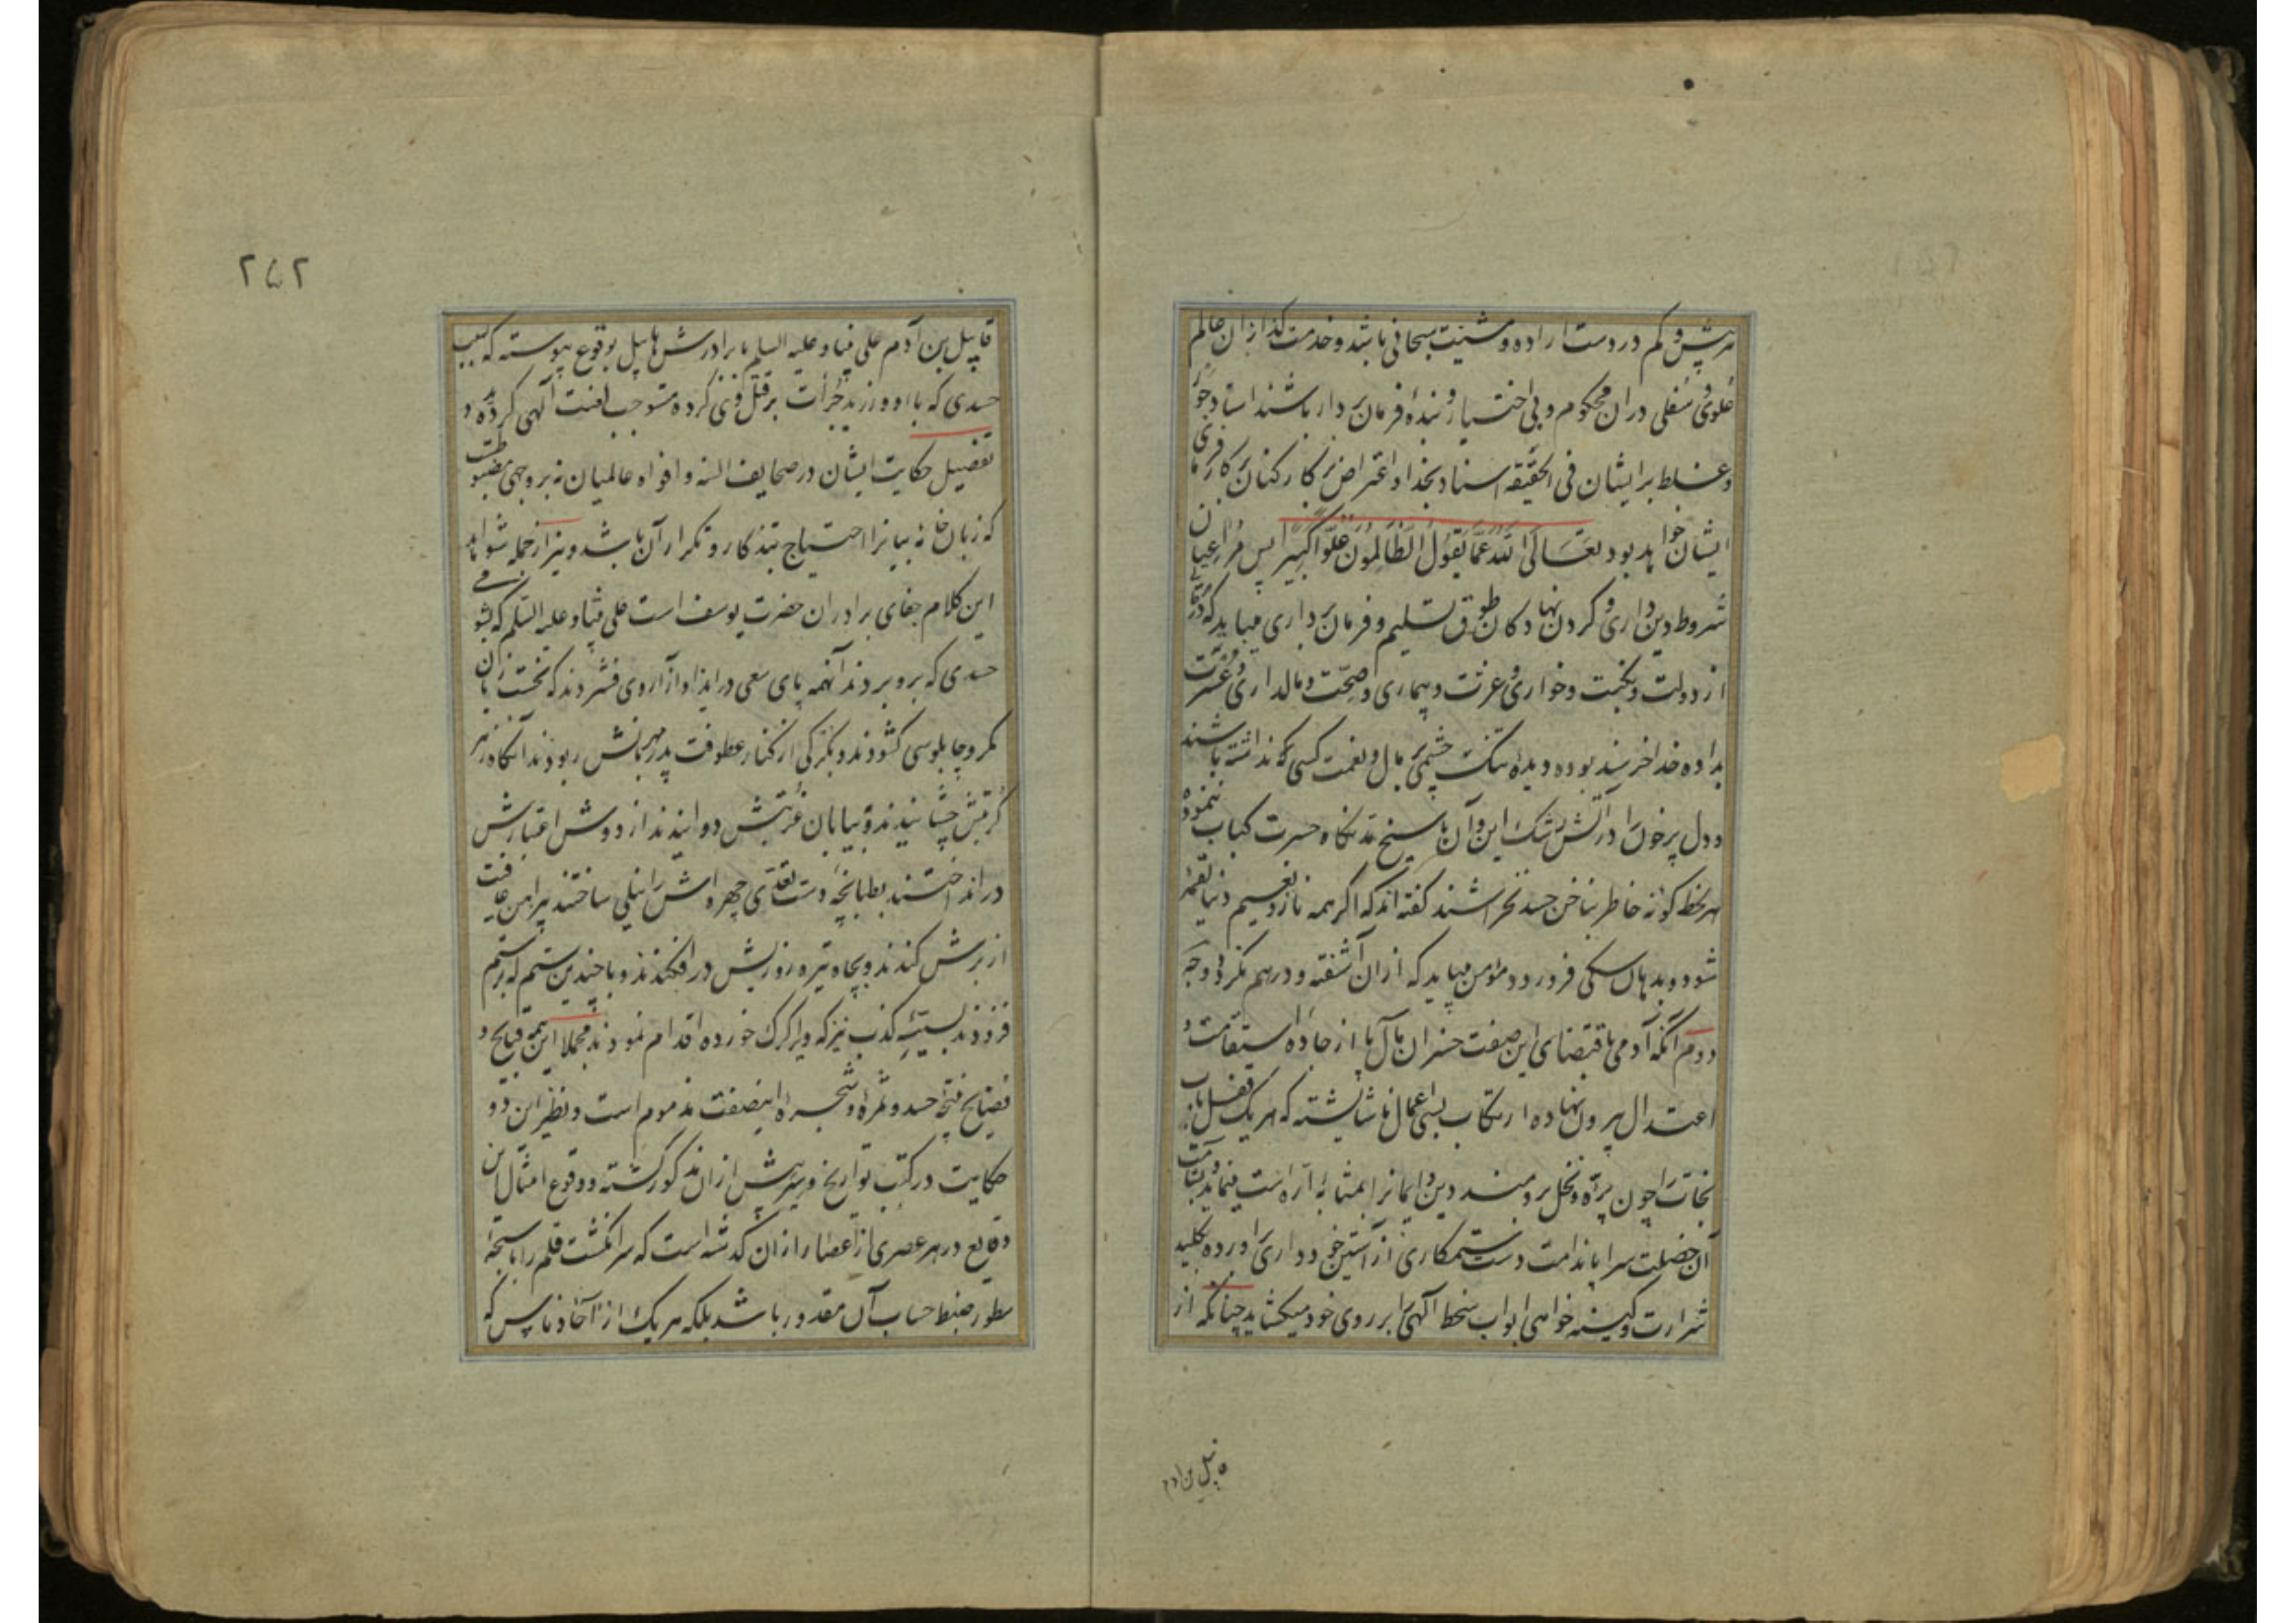 هر بیش و کم در دست اراده و مشیت سبحانی باشد و خدمت گذاران عالم
علوی و سفلی در آن محکوم و بی اختیار و بنده فرمان بردار باشند اسناد جور
و غلط بر ایشان فی الحقیقه اسناد بخدا و اعتراض بر کارکنان کارفرمای
ایشان خواهد بود تَعَالَی اللّهُ عَمَّا یَقُولُ الظَّالِمُونَ عُلُوّاً کَبِیراً پس مر راعیان
شروط دین داری و گردن نهادکان طوق تسلیم و فرمان برداری میباید که در
از دولت و نکبت و خواری و عزت و بیماری و صحت و مالداری و عسرت
بداده خدا خرسند بوده دیده تنک چشمی بر مال و نعمت کسی نداشته باشند
و دل پر خون را در آتش رشک این و آن با سیخ مد نکاه حسرت کباب ننموده
هر لحظه کونه خاطر بناخن حسد نخراشند کفته اند که اکر همه ناز و نعیم دنیا لقمه
شود و بدهان سکی فرو رود مؤمن میباید که از آن آشفته و درهم نکردد وجه
دوم آنکه آدمی باقتضای این صفت خسران مآل پا از جاده استقامت و
اعتدال بیرون نهاده ارتکاب بسی اعمال ناشایسته که هر یک قفل باب
نجات را چون پره و نخل برومند دین و ایمانرا بمثابه اره است مینماید و بشامت
آن خصلت سراپا ندامت دست ستمکاری از آستین خود داری بر آورده بکلید
شرارت و کینه خواهی ابواب سخط الهی را بر روی خود میکشاید چنانکه از
قابیل بن آدم
۲۵۲
قابیل بن آدم علی نبینا و علیه السلم با برادرش هابیل بوقوع پیوسته که بسبب
حسدی که با او ورزید جرأت بر قتل وی کرده مستوجب لعنت الهی کردید و
تفصیل حکایت ایشان در صحایف السنه و افواه عالمیان نه بر وجهی مضبوطست
که زبان خامه بیانرا احتیاج بتذکار و تکرار آن باشد و نیز از جمله شواهد
این کلام جفای برادران حضرت یوسف است علی نبینا و علیه السلم که بشومی
حسدی که برو بردند آنهمه پای سعی در ایذا و آزار وی فشردند که نخست زبان
بمکر و چاپلوسی کشودند و بکرکی از کنار عطوفت پدر مهربانش ربودند آنکاه زهر
کربتش چشانیدند و بیابان غربتش دوانیدند از دوش اعتبارش
در انداختند بطپانچه دست تعدی چهره اش را نیلی ساختند پیراهن عافیت
از برش کندند و بچاه تیره روزیش در افکندند و با چندین ستم که بر ستم
فزودند بسیئه کذب نیز که ویرا کرک خورده اقدام نمودند مجملا این همه قبایح و
فضایح نتیجه حسد و ثمره شجره اینصفت مذموم است و نظیر این دو
حکایت در کتب تواریخ و سیر بیش از آن مذکور کشته و وقوع امثال این
وقایع در هر عصری از اعصار از آن گذشته است که سر انکشت قلم را با سبحه
سطور ضبط حساب آن مقدور باشد بلکه هر یک از آحاد ناس که